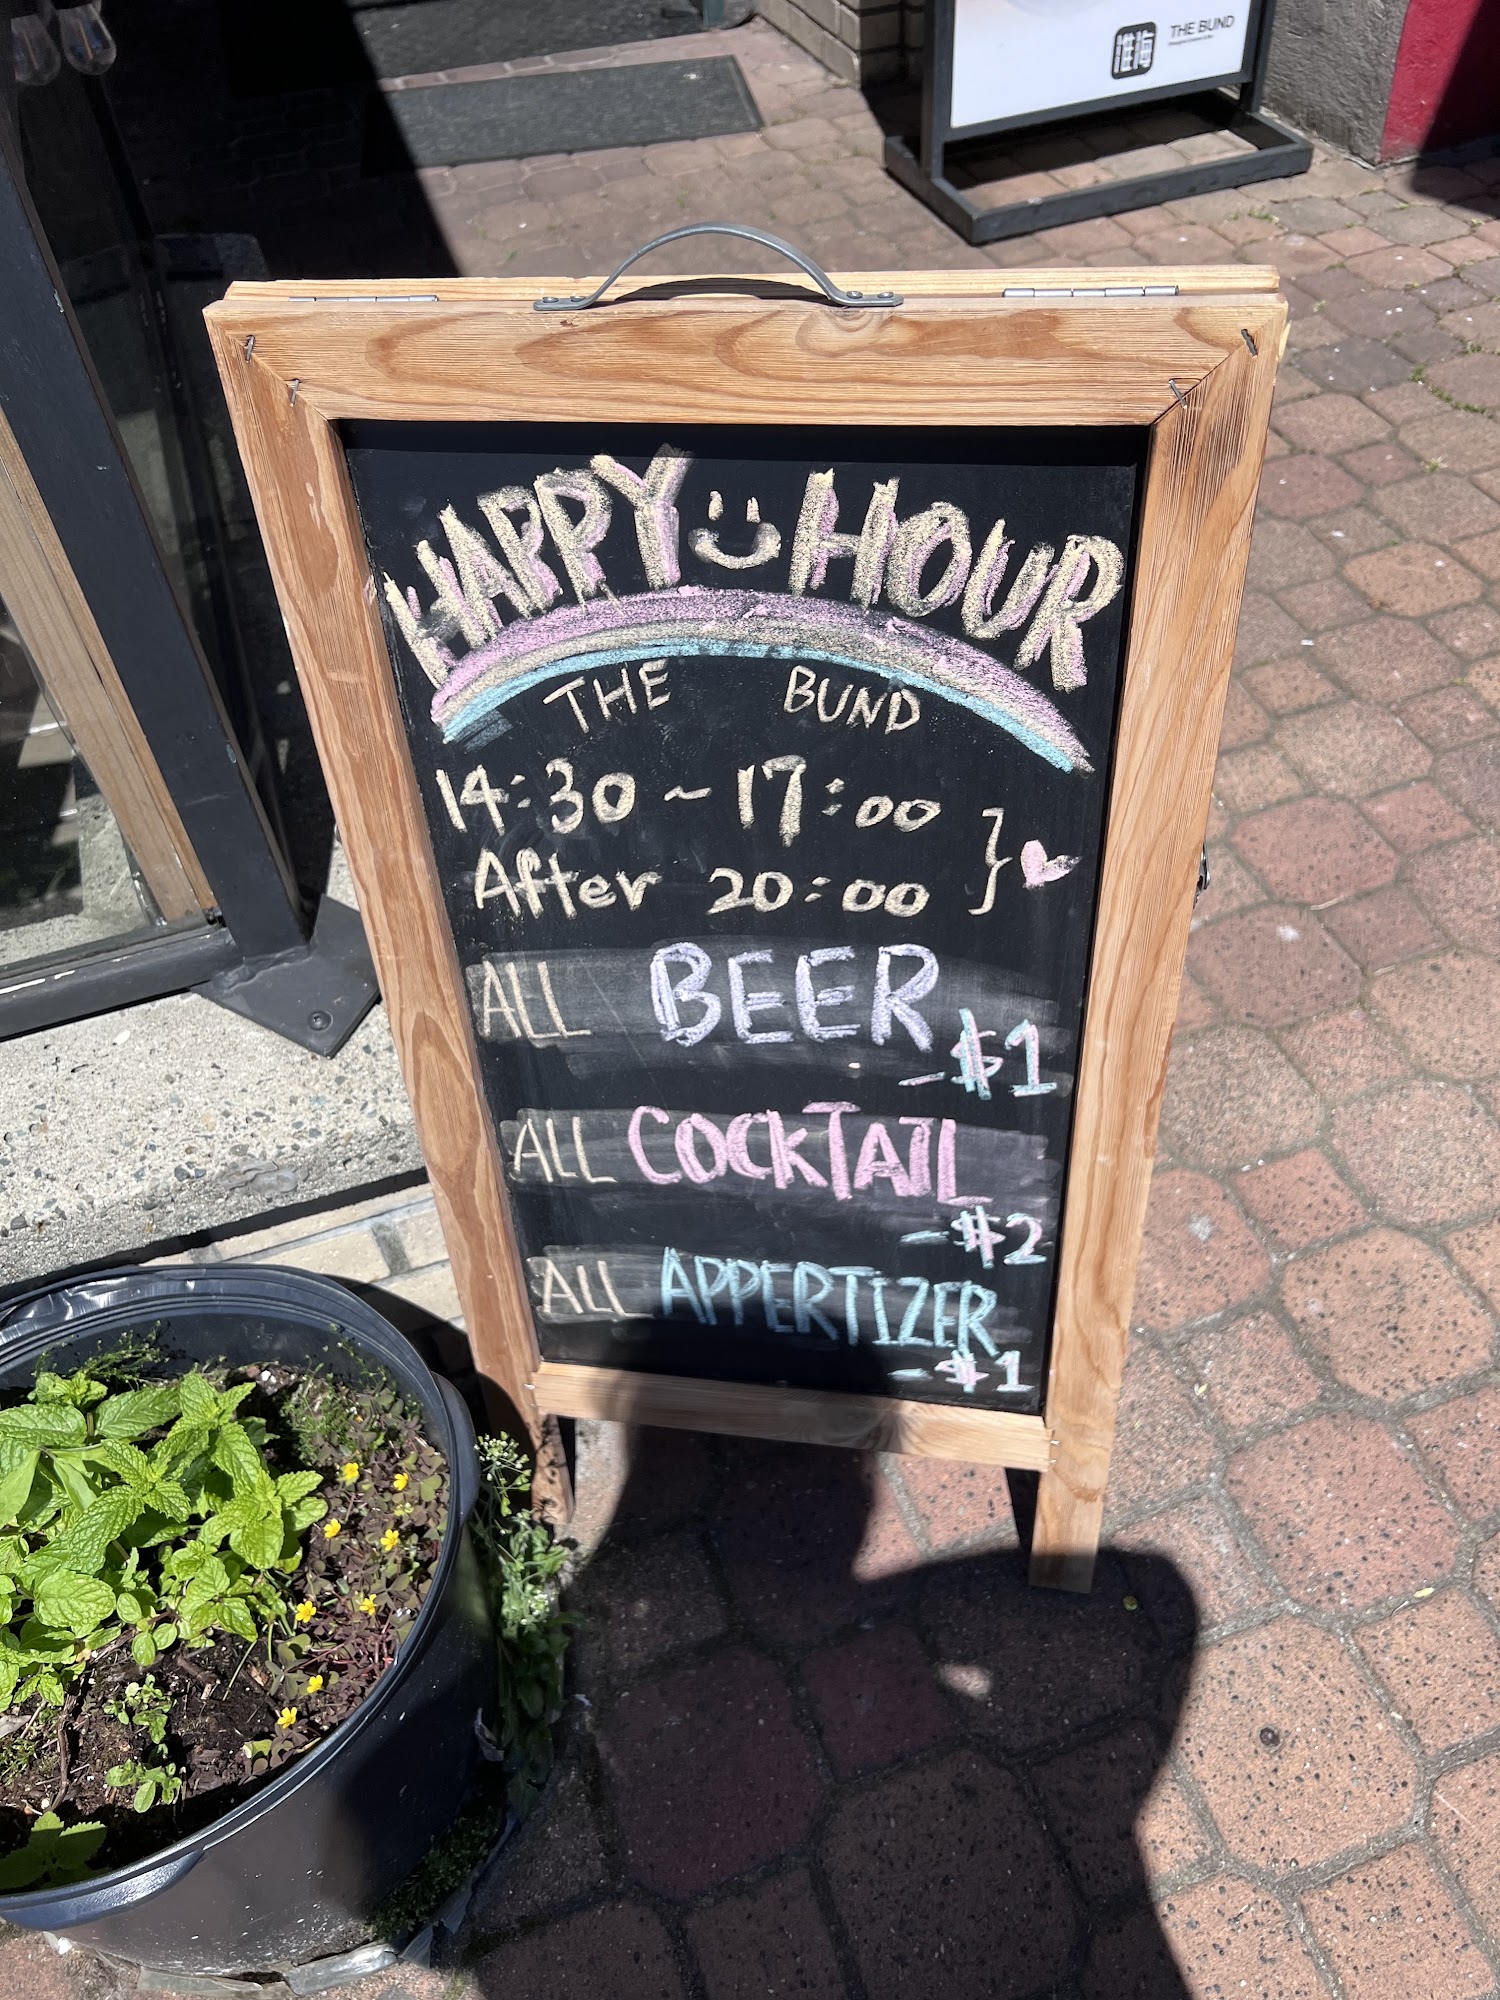 THE BUND
HAPPY HOUR
THE BUND
14:30 ~ 17:00
After 20:00
ALL BEER
-$1
ALL COCKTAIL
-$2
ALL APPERTIZER
-$1